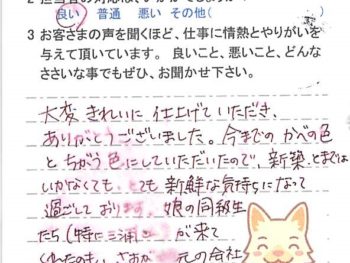 良い 普通 悪い その他(
3 お客さまの声を聞くほど、仕事に情熱とやりがいを
与えて頂いています。 良いこと、悪いこと、どんな
ささいな事でもぜひ、お聞かせ下さい。
大変きれいに仕上げていただき、
ありがとうございました。今までのかべの色
とちがう色にしていただいたので、新築とまでは
いかなくても、とても新鮮な気持ちになって
過ごしております。娘の同級生
たち(特に三浦 が来て
元の会社